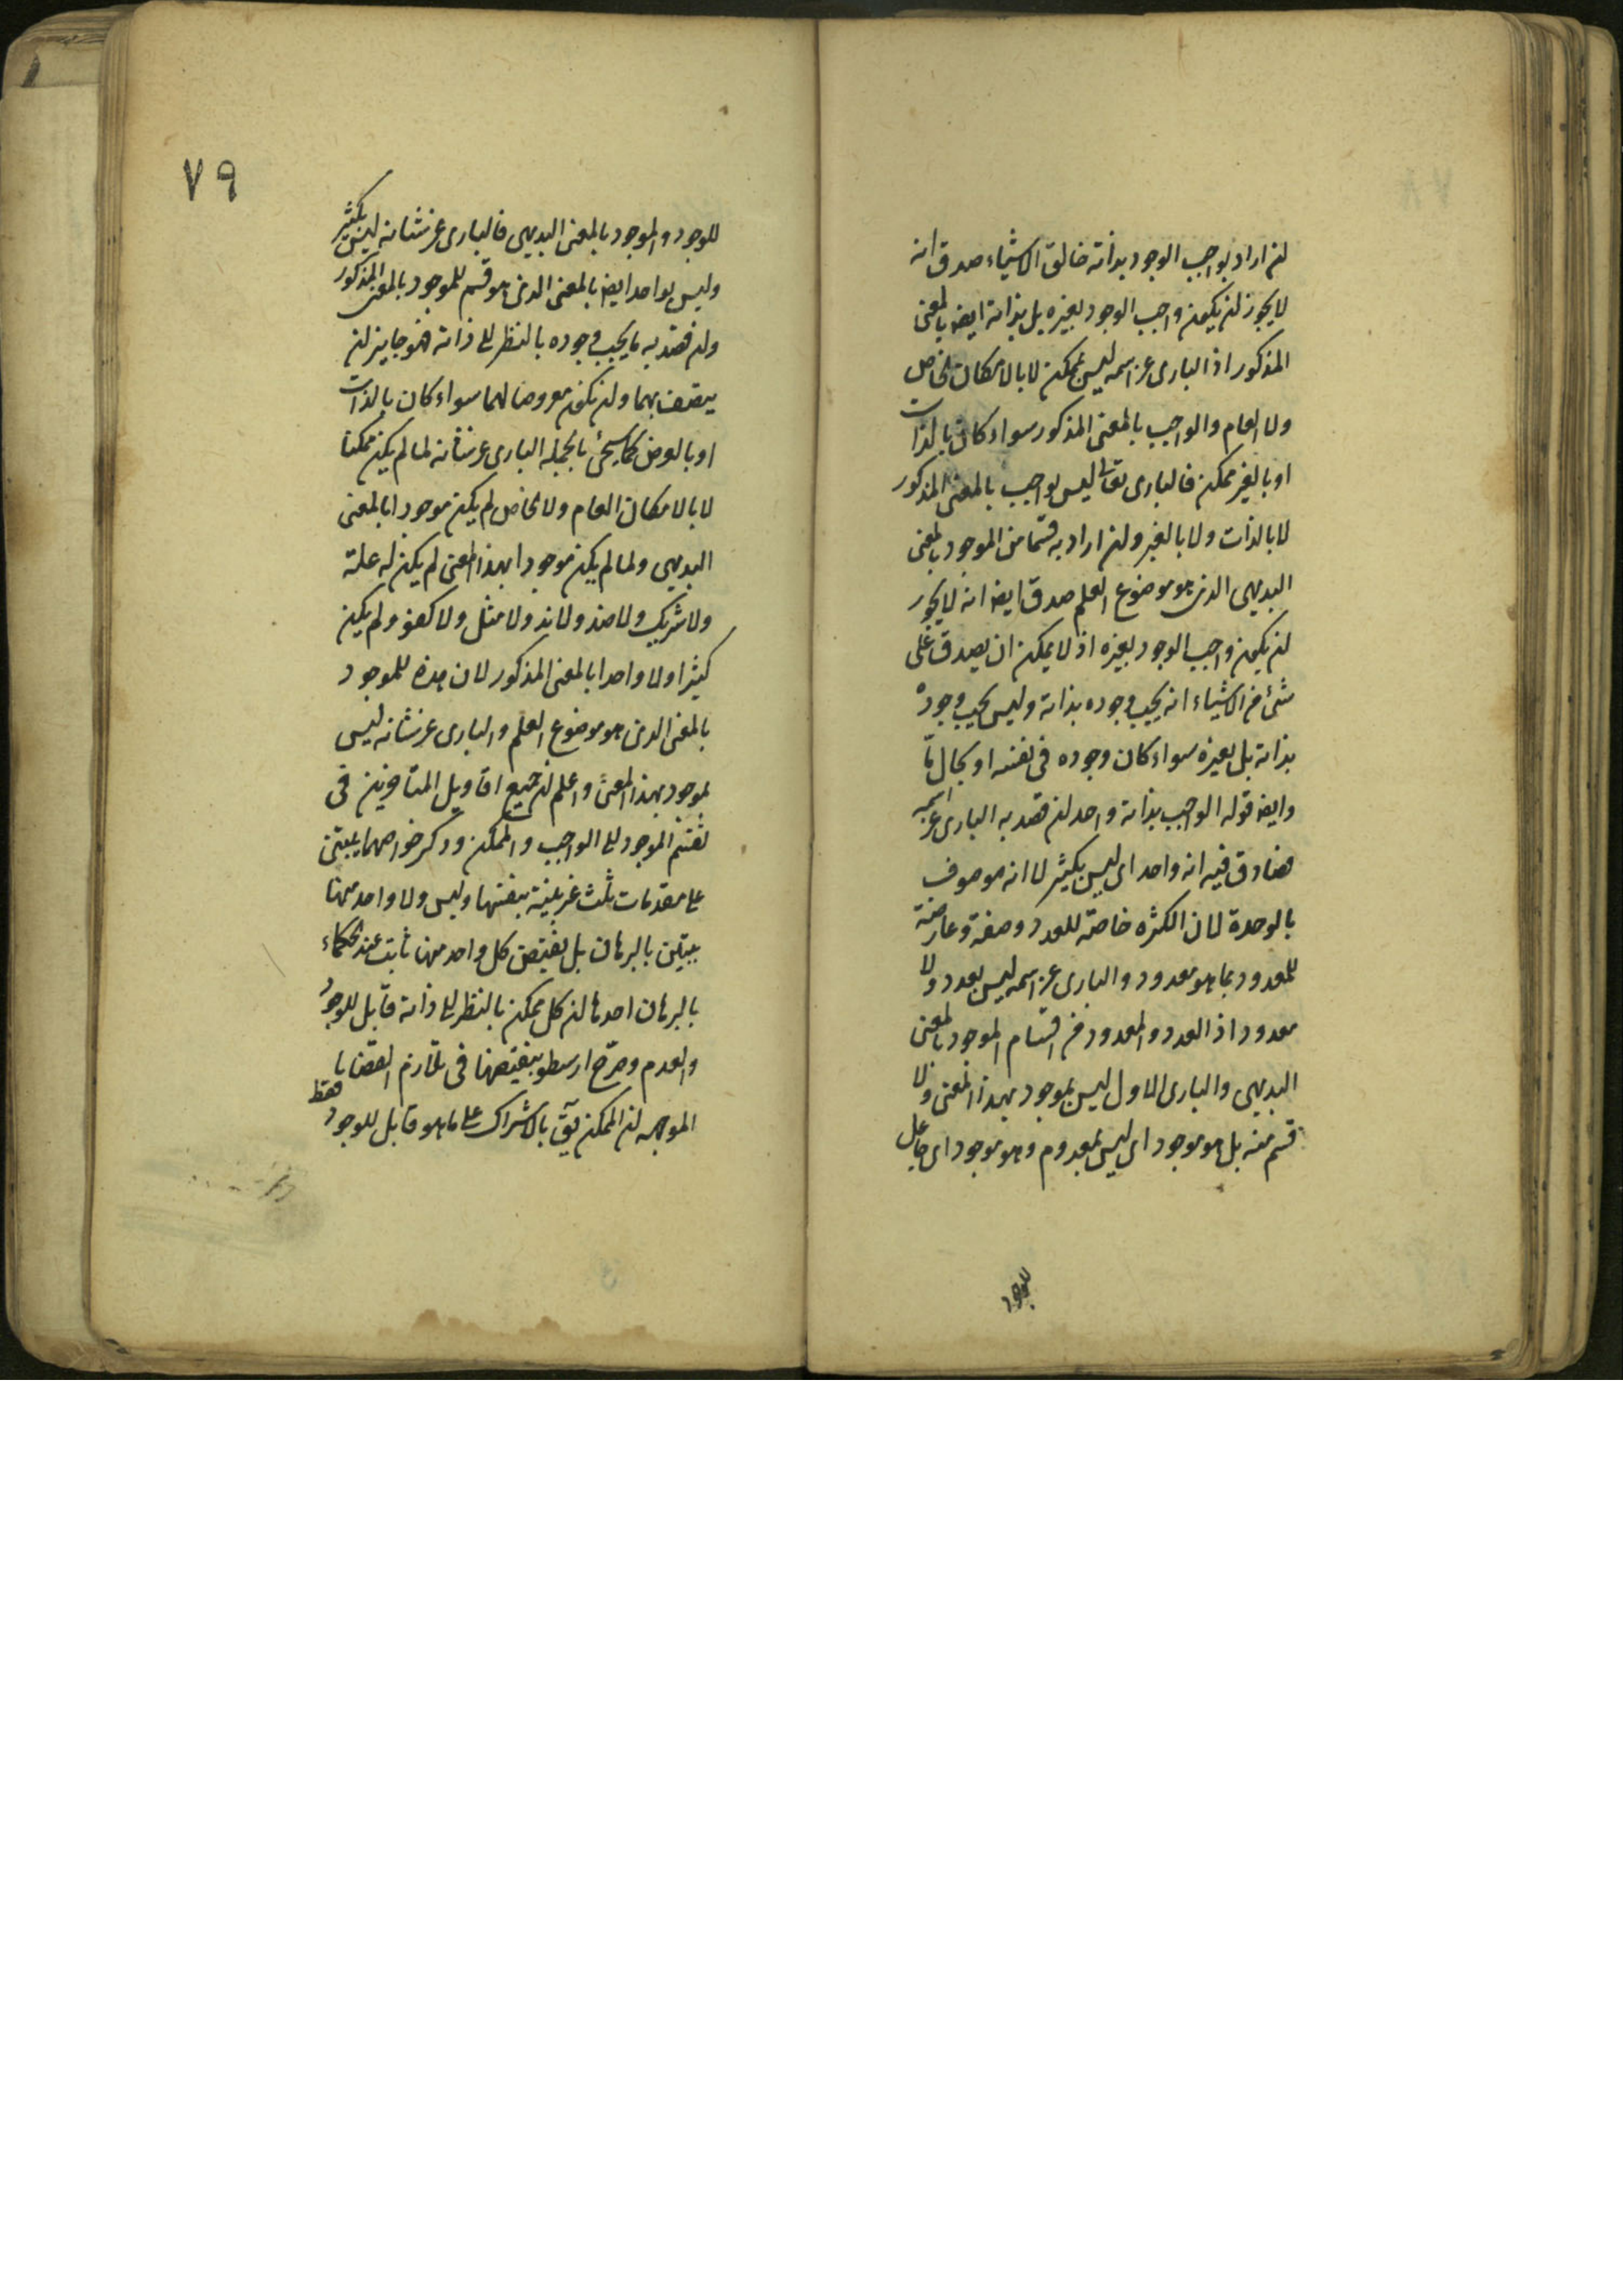 ان اراد بواجب الوجود بذاته خالق الاشياء صدق انه
لا يجوز ان يكون واجب الوجود بغيره بل بذاته ايض بالمعنى
المذكور اذ البارى عز اسمه ليس بممكن لا بالامكان الخاص
ولا العام والواجب بالمعنى المذكور سواء كان بالذات
او بالغير ممكن فالبارى تعالى ليس بواجب بالمعنى المذكور
لا بالذات ولا بالغير وان اراد به قسما من الموجود بالمعنى
البديهى الذى هو موضوع العلم صدق ايض انه لا يجوز
ان يكون واجب الوجود بغيره اذ لا يمكن ان يصدق على
شئ من الاشياء انه يجب وجوده بذاته وليس يجب وجوده
بذاته بل بغيره سواء كان وجوده فى نفسه او بحال ما
وايض قوله الواجب بذاته واحد ان قصد به البارى عز اسمه
فصادق فيه انه واحد اى ليس بكثير لا انه موصوف
بالوحدة لان الكثره خاصة للعدد وصفة وعارضة
للمعدود بما هو معدود والبارى عز اسمه ليس بعدد ولا
معدود اذ العدد والمعدود من اقسام الموجود بالمعنى
البديهى والبارى الاول ليس بموجود بهذا المعنى ولا
قسم منه بل هو موجود اى ليس بمعدوم وهو موجود اى جاعل
للوجود
٧٩
للوجود والموجود بالمعنى البديهى فالبارى عز شانه ليس بكثير
وليس بواحد ايض بالمعنى الذى هو قسم للموجود بالمعنى المذكور
وان قصد به ما يجب وجوده بالنظر الى ذاته فهو جايز ان
يتصف بهما وان يكون معروضا لهما سواء كان بالذات
او بالعرض كما سيجئ بالجمله البارى عز شانه لما لم يكن ممكنا
لا بالامكان العام ولا الخاص لم يكن موجودا بالمعنى
البديهى ولما لم يكن موجودا بهذا المعنى لم يكن له علة
ولا شريك ولا ضد ولا ند ولا مثل ولا كفو ولم يكن
كثيرا ولا واحدا بالمعنى المذكور لان هذه للموجود
بالمعنى الذى هو موضوع العلم والبارى عز شانه ليس
بموجود بهذا المعنى واعلم ان جميع اقاويل المتاخرين فى
تقسيم الموجود الى الواجب والممكن وذكر خواصهما يبتنى
على مقدمات ثلث غير بينة بنفسها وليس ولا واحد منها
يبتين بالبرهان بل نقيض كل واحد منها ثابت عند الحكماء
بالبرهان احدها ان كل ممكن بالنظر الى ذاته قابل للوجود
والعدم وصرح ارسطو بنقيضها فى تلازم القضايا
الموجهه ان الممكن يق بالاشراك على ما هو قابل للوجود فقط